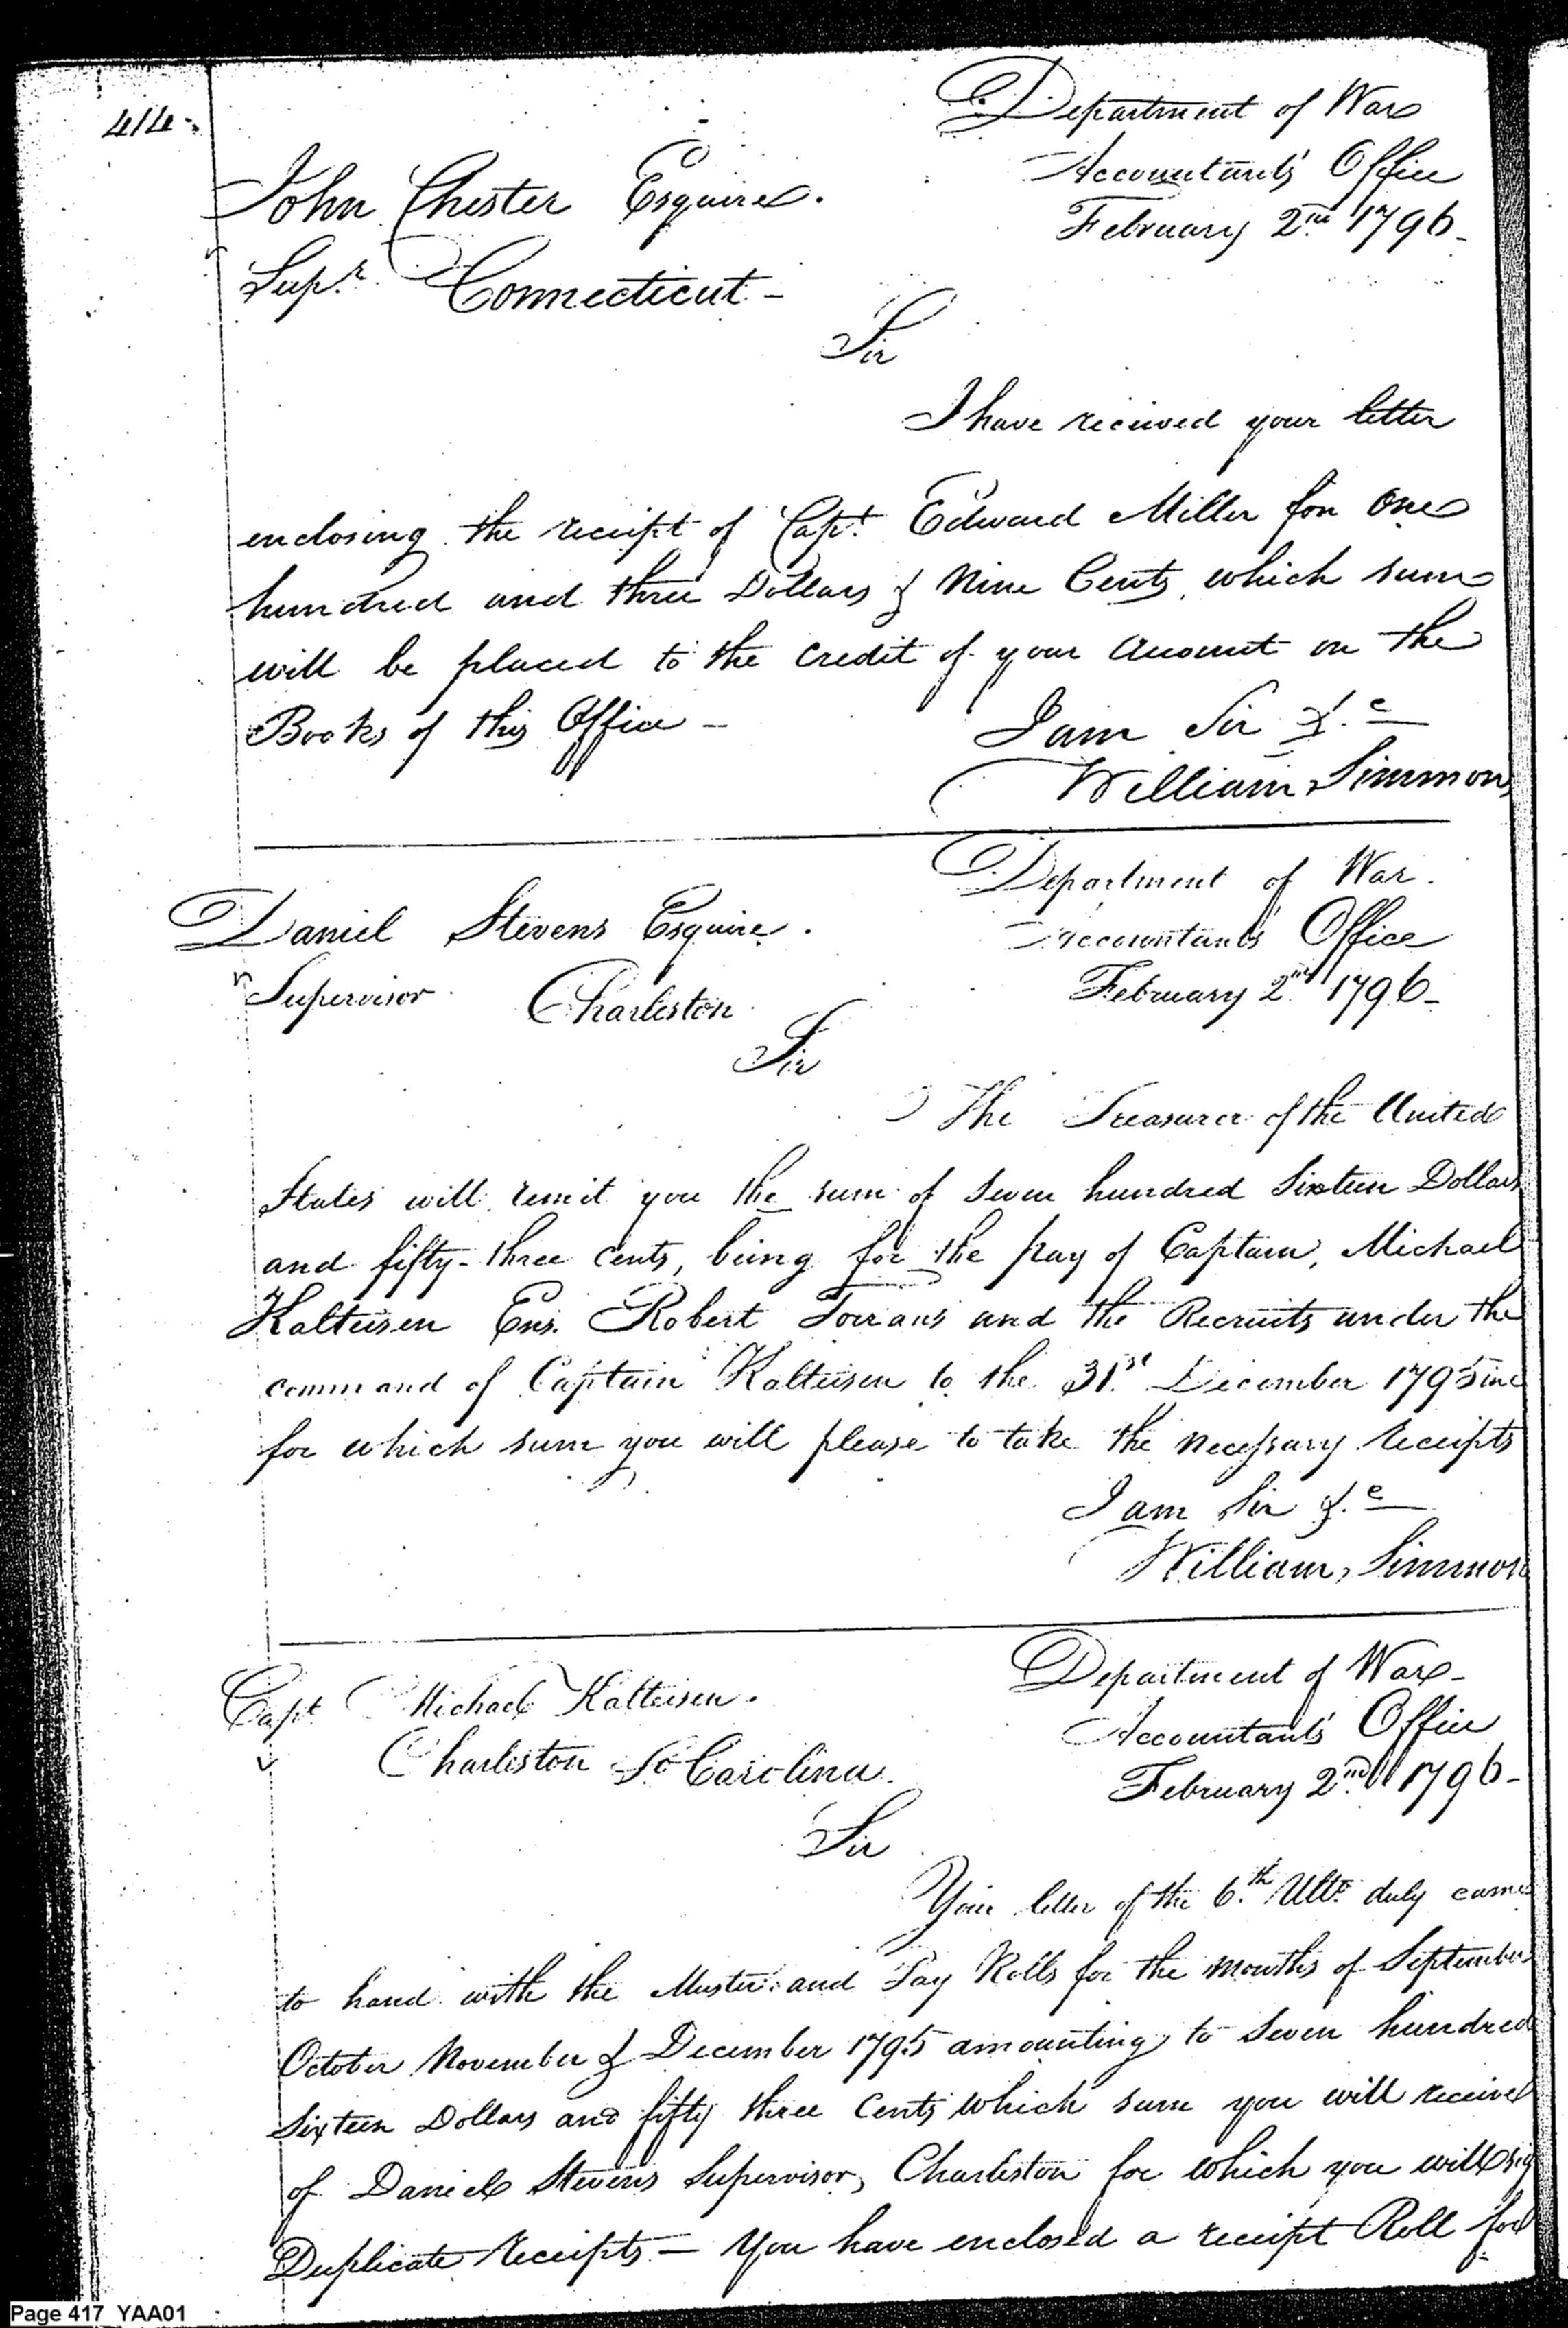 414
Department of War
Accountants Office
February 2nd 1796
John Chester Esquire.
Supr. Connecticut
Sir
I have received your letter
enclosing the receipt of Capt. Edward Miller for One
hundred and three Dollars & Nine Cents, which sum
will be placed to the credit of your Account on the
Books of this Office
I am Sir &.c
William Simmons
Department of War.
Accountants Office
February 2nd 1796
Daniel Stevens Esquire.
Supervisor Charleston
Sir
The Treasurer of the United
States will remit you the sum of Seven hundred Sixteen Dollars
and fifty-three cents, being for the pay of Captain, Michael
Kalteisen Ens. Robert Torrans and the Recruits under the
command of Captain Kalteisen to the 31st December 1795 inc
for which sum you will please to take the necessary receipts
I am Sir &.c
William Simmon
Department of War
Accountants Office
February 2nd 1796
Capt Michael Kalteisen.
Charleston So Carolina.
Sir
Your letter of the 6th Ulto. duly came
to hand with the Muster and Pay Rolls for the months of September
October November & December 1795 amounting to Seven hundred
Sixteen Dollars and fifty three Cents which sum you will receive
of Daniel Stevens Supervisor, Charleston for which you will sig
Duplicate receipts — You have enclosed a receipt Roll for
Page 417 YAA01